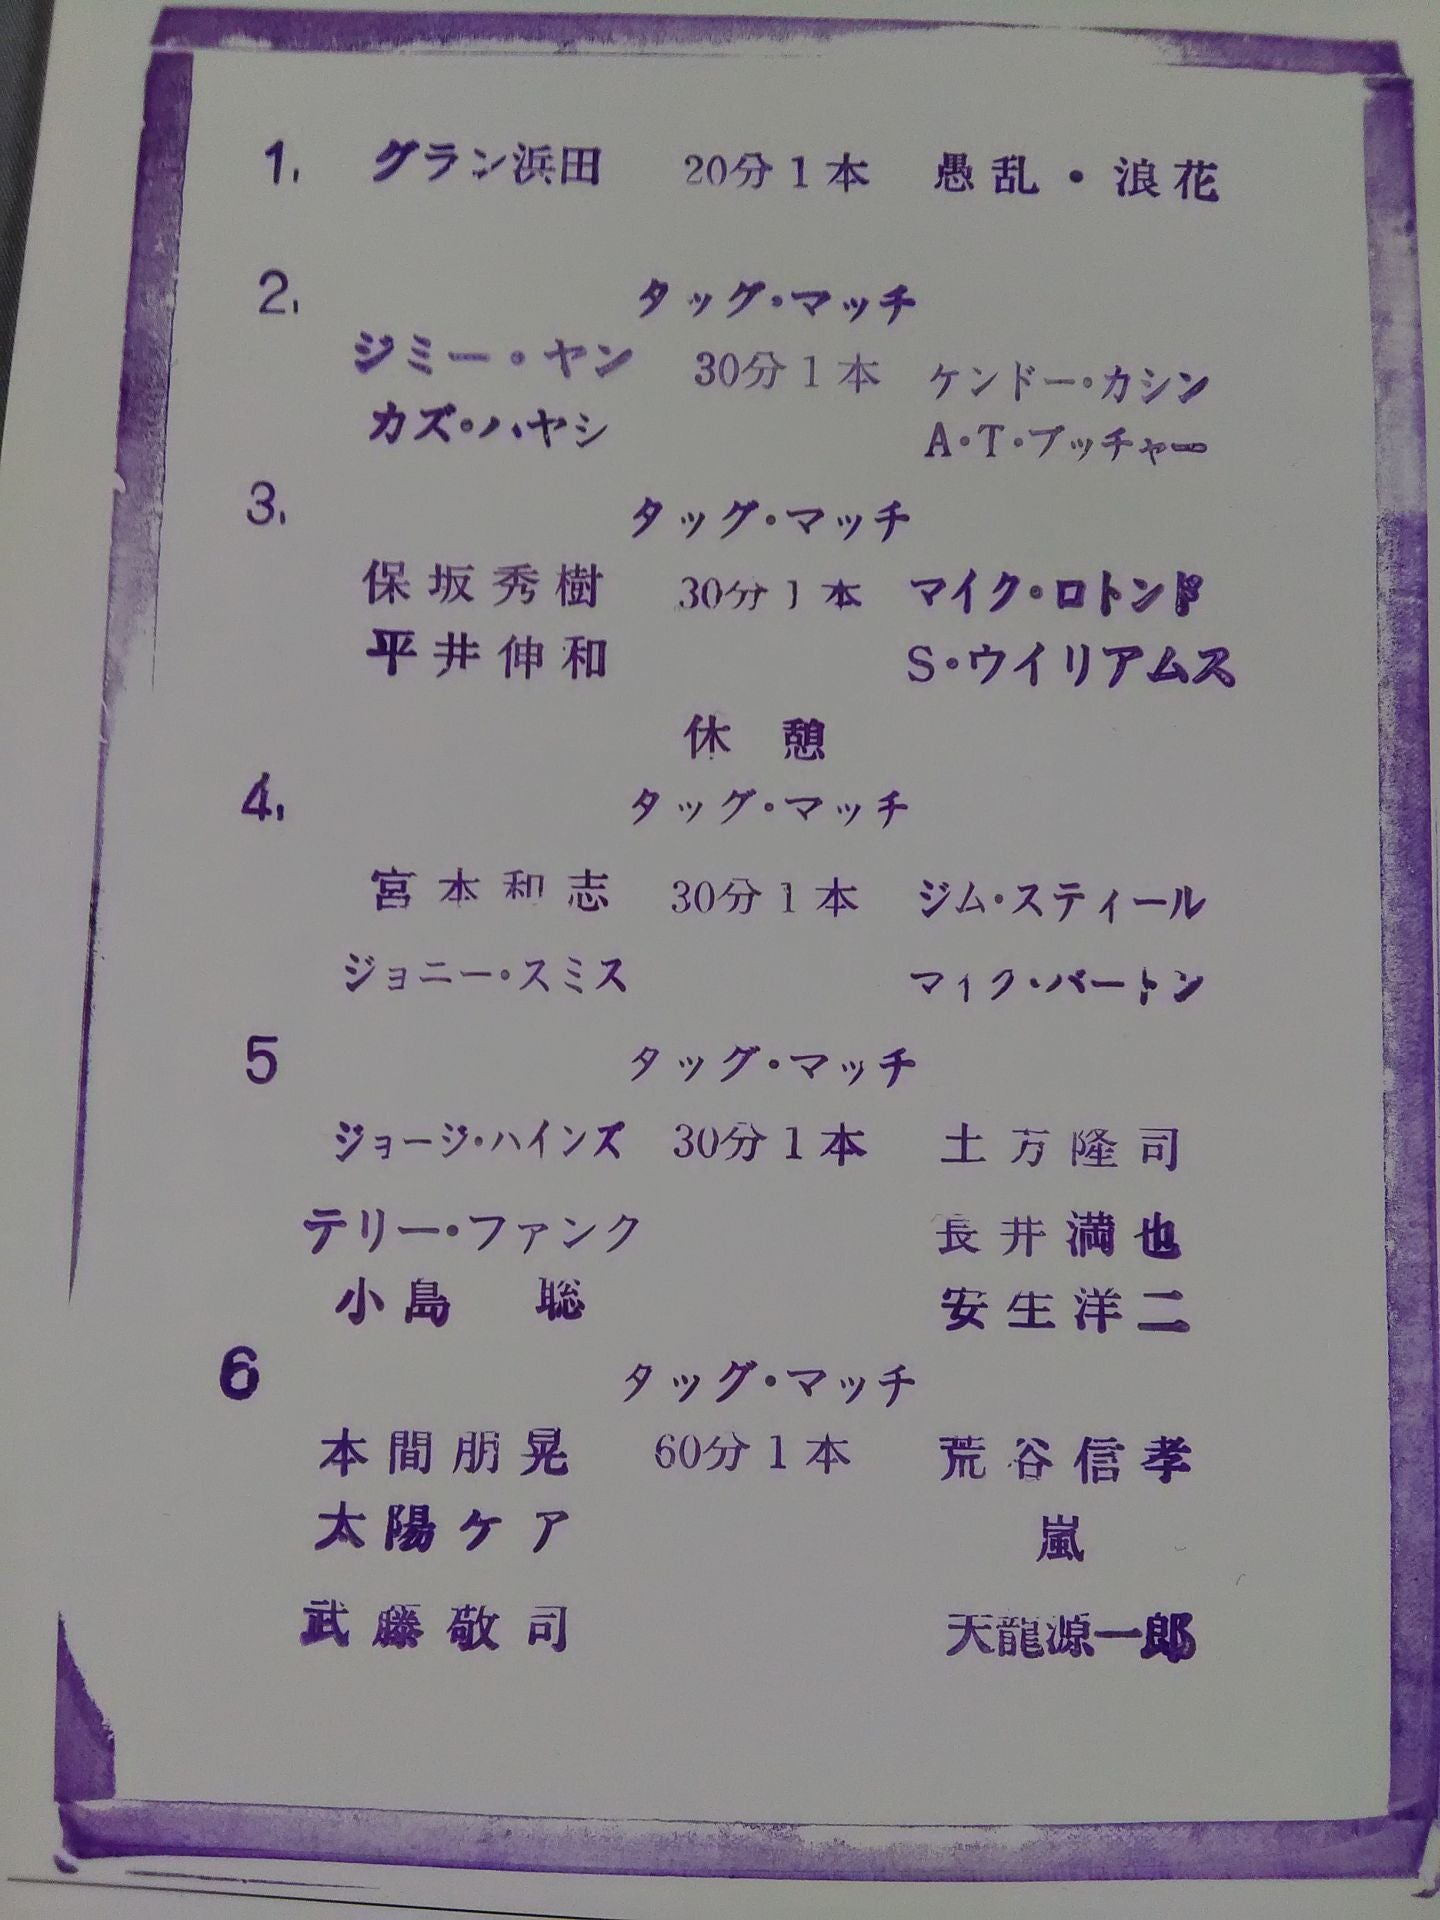 1. グラン浜田 20分1本 愚乱・浪花
2. タッグ・マッチ
ジミー・ヤン 30分1本 ケンドー・カシン
カズ・ハヤシ A・T・ブッチャー
3. タッグ・マッチ
保坂秀樹 30分1本 マイク・ロトンド
平井伸和 S・ウイリアムス
休憩
4. タッグ・マッチ
宮本和志 30分1本 ジム・スティール
ジョニー・スミス マイク・バートン
5 タッグ・マッチ
ジョージ・ハインズ 30分1本 土方隆司
テリー・ファンク 長井満也
小島 聡 安生洋二
6 タッグ・マッチ
本間朋晃 60分1本 荒谷信孝
太陽ケア 嵐
武藤敬司 天龍源一郎